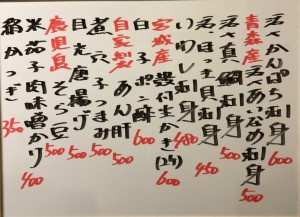 活〆かんぱち刺身 600
青森産 活〆あいなめ刺身 500
活〆真鯛刺身
活ほっき貝刺身 450
いわし刺身 480
宮城産 殻付生かき(2ケ) 600
白子ポン酢 600
自家製 あん肝 500
煮穴子つまみ 500
目光唐揚げ 500
鹿児島 そら豆 500
米茄子肉味噌かけ 400
絹かつぎ 350